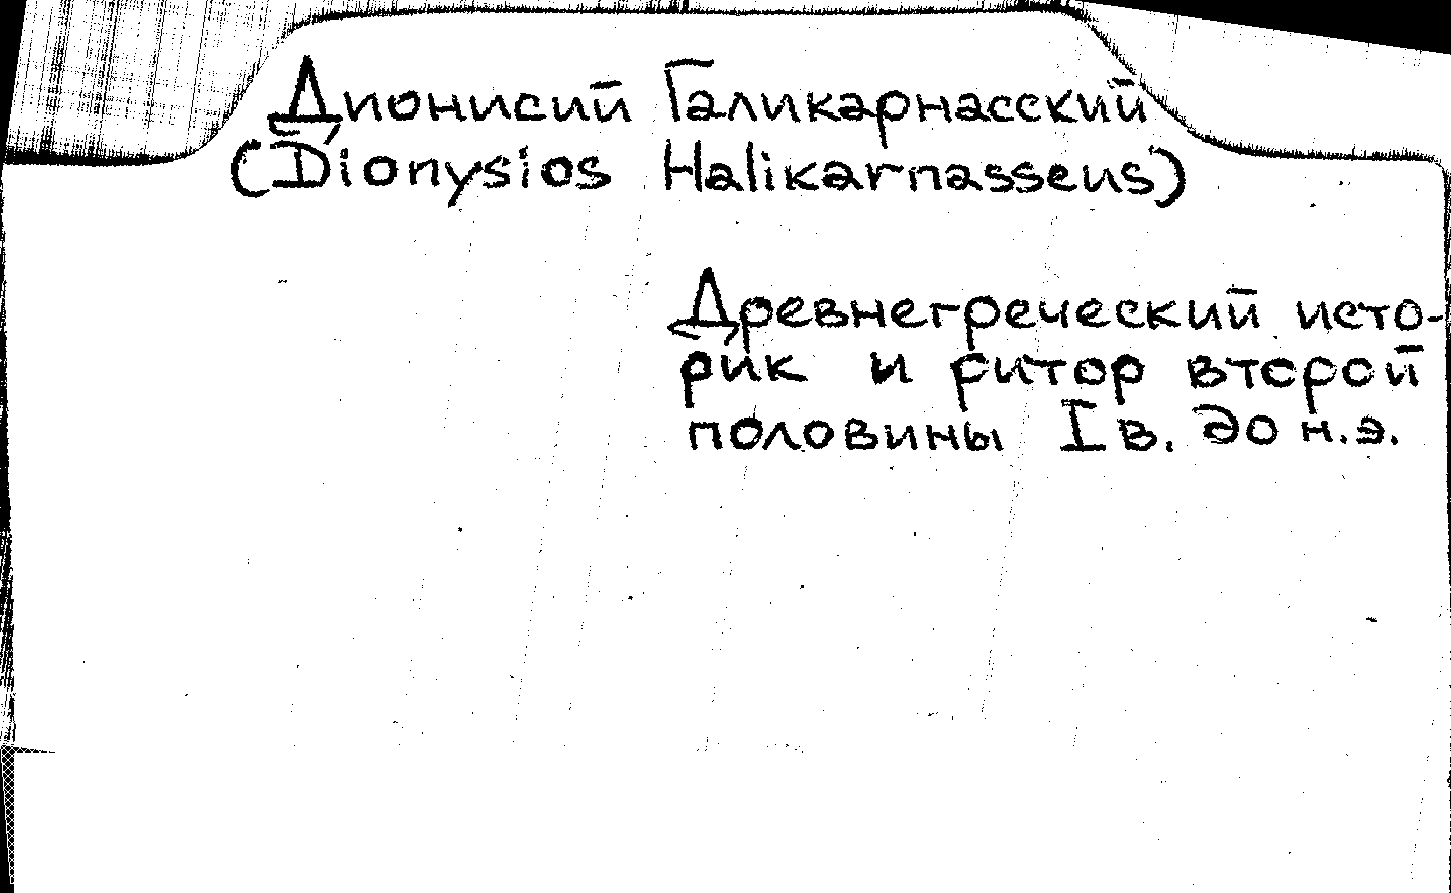 Дионисий Галикарнасский
(Dionysios Halikarnasseus)
Древнегреческий исто-
рик и ритор второй
половины I в. до н.э.